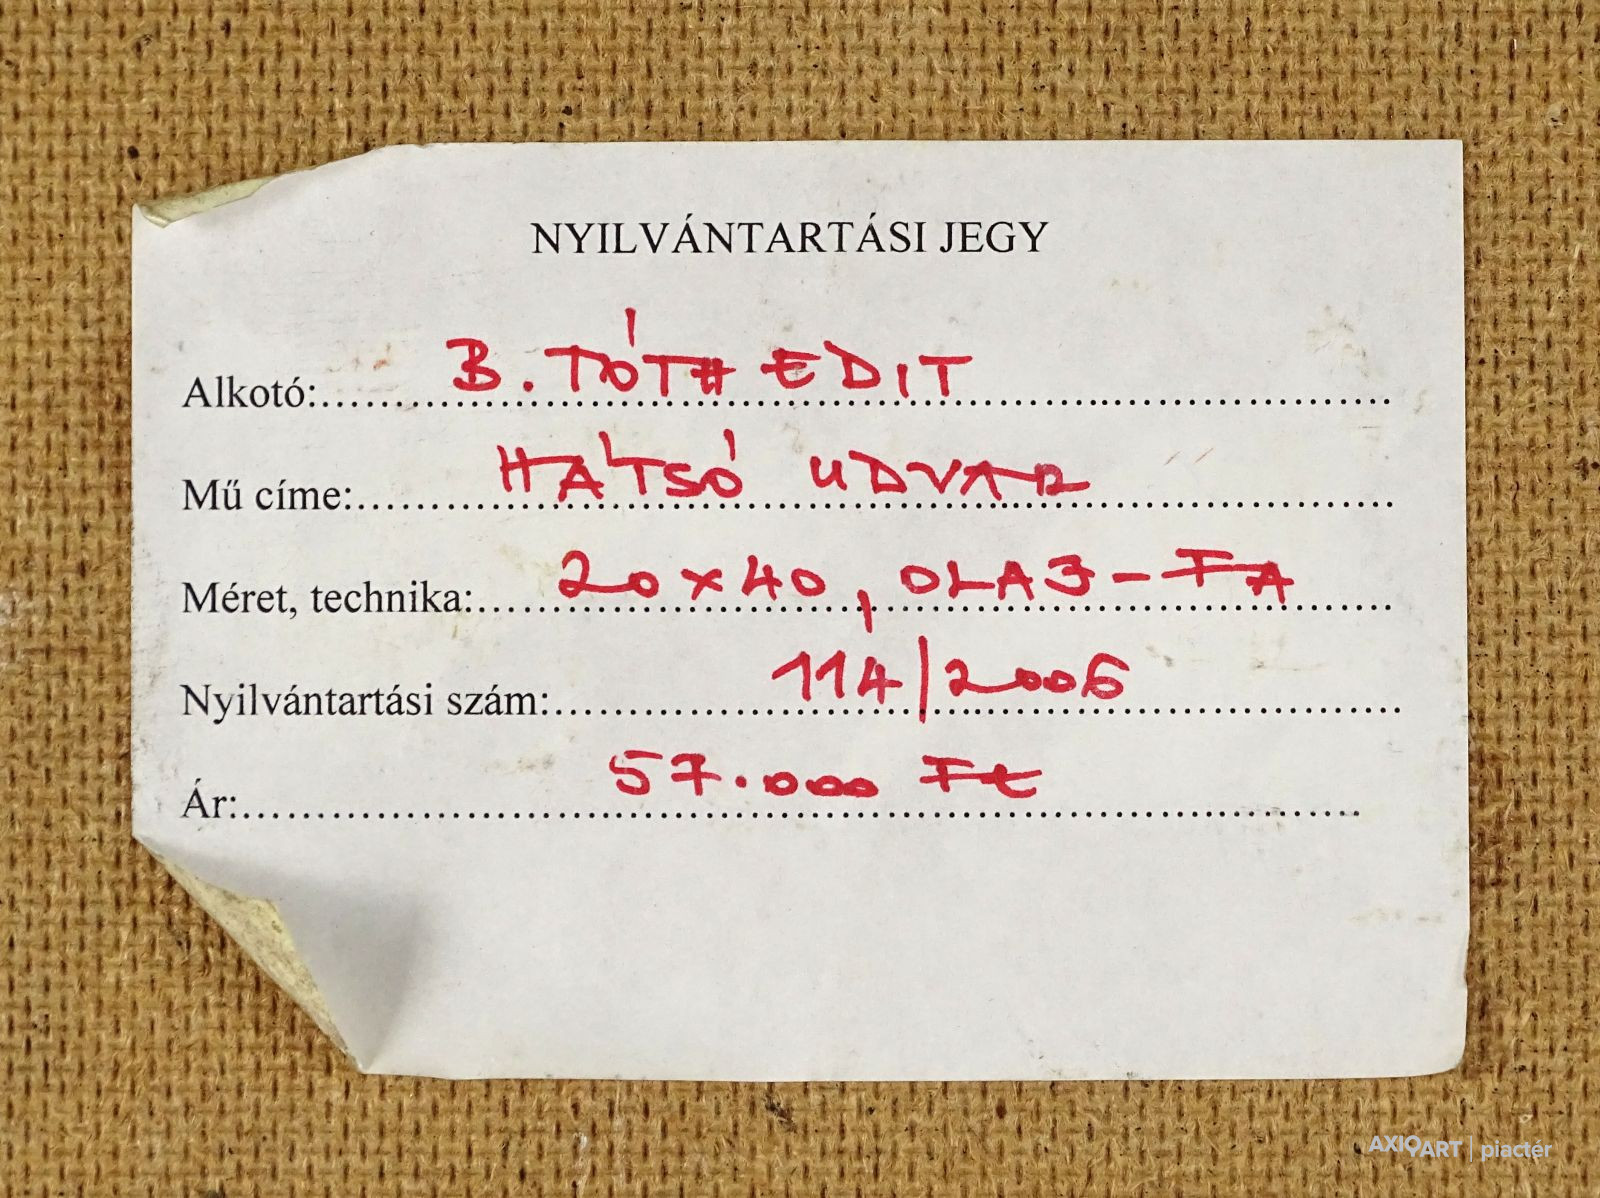 NYILVÁNTARTÁSI JEGY
Alkotó: B. TÓTH EDIT
Mű címe: HÁTSÓ UDVAR
Méret, technika: 20 x 40, OLAJ-FA
Nyilvántartási szám: 114/2006
Ár: 57.000 Ft
AXIOART | piactér